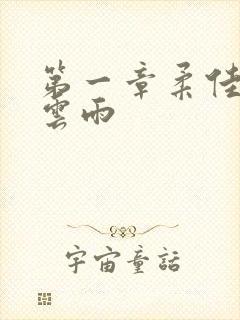 第一章柔佳
雲雨
宇宙童話